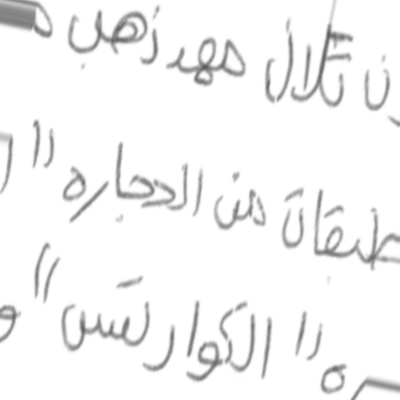 تلال مهد ذهب
طبقات من الحجاره "
ره " الكوارتس " و